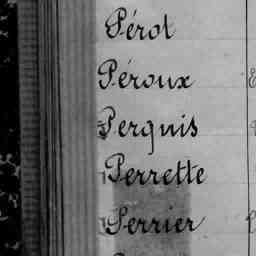 Pérot
Péroux
Perquis
Perrette
Perrier